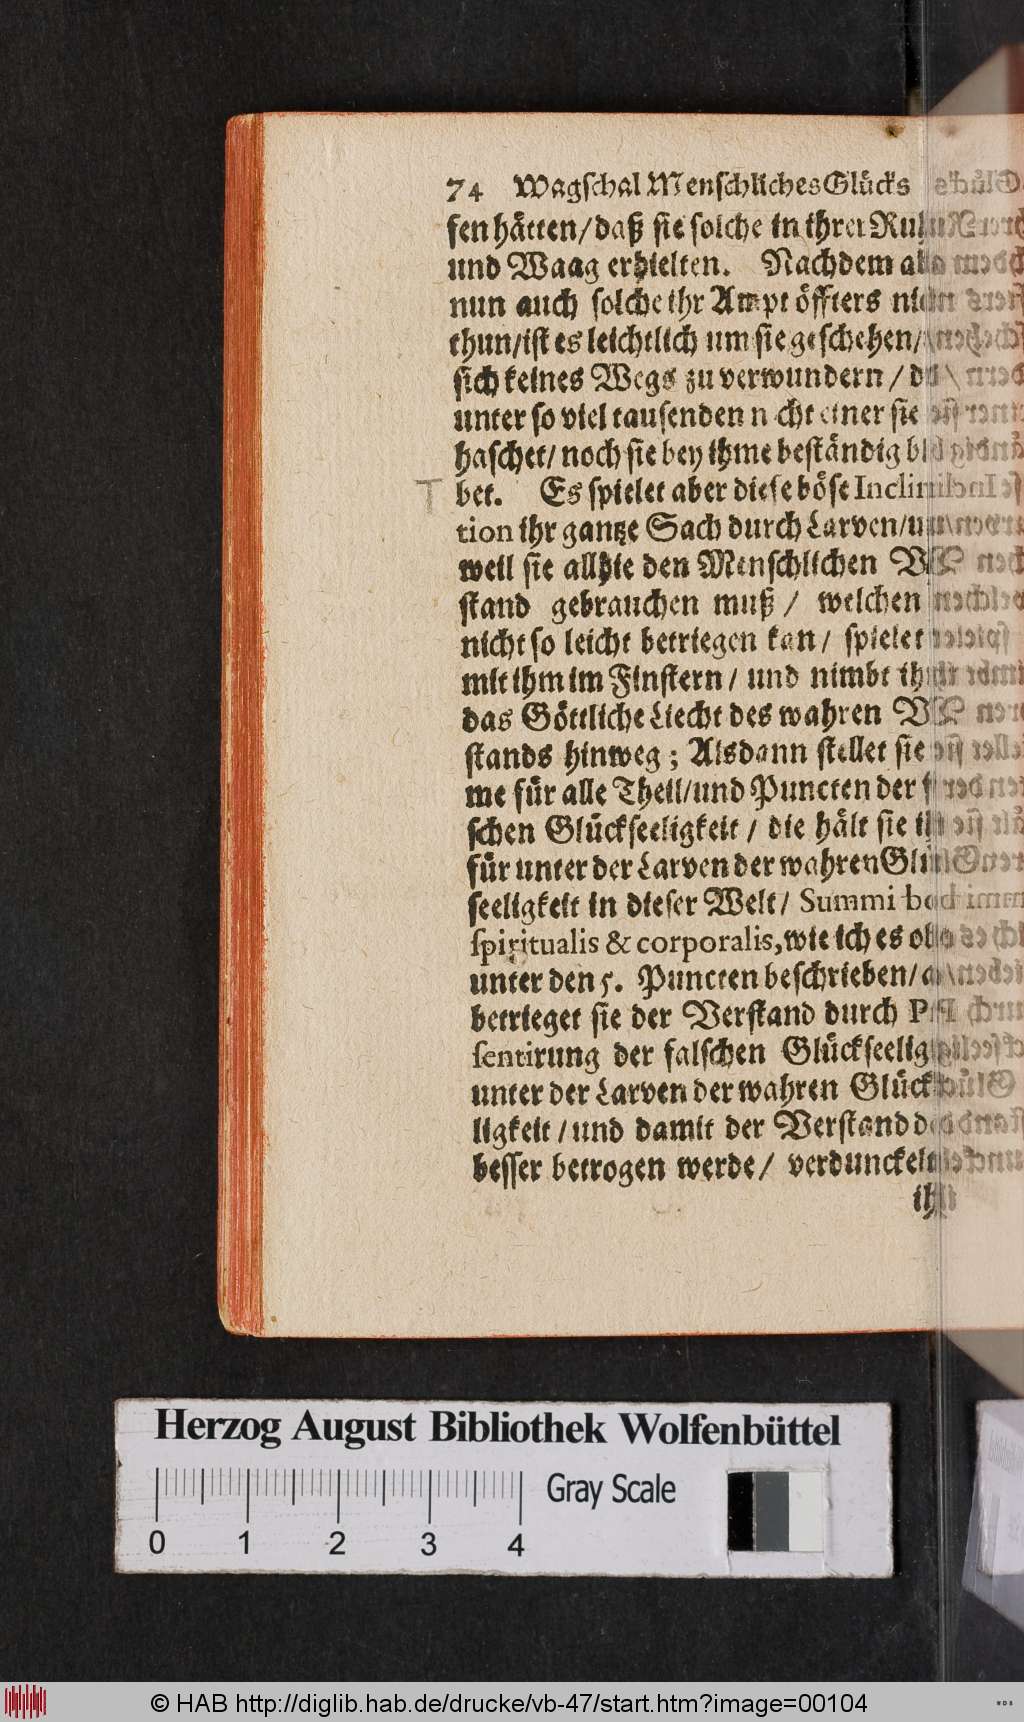 74 Wagschal Menschliches Glücks
fen hätten/ daß sie solche in ihrer
und Waag erhielten. Nachdem
nun auch solche ihr Ampt öffters
thun/ ist es leichtlich um sie geschehen/
sich keines Wegs zu verwundern/
unter so viel tausenden nicht einer sie
haschet/ noch sie bey ihme beständig
bet. Es spielet aber diese böse
tion ihr gantze Sach durch Larven/
weil sie allhie den Menschlichen
stand gebrauchen muß/ welchen
nicht so leicht betriegen kan/ spielet
mit ihm im Finstern/ und nimbt
das Göttliche Liecht des wahren
stands hinweg; Alsdann stellet sie
me für alle Theil/ und Puncten der
schen Glückseeligkeit/ die hält sie
für unter der Larven der wahren
seeligkeit in dieser Welt/ Summi
spiritualis & corporalis, wie ich es
unter den 5. Puncten beschrieben/
betrieget sie der Verstand durch
sentirung der falschen
unter der Larven der wahren
ligkeit/ und damit der Verstand
besser betrogen werde/
Herzog August Bibliothek Wolfenbüttel
Gray Scale
0 1 2 3 4
© HAB http://diglib.hab.de/drucke/vb-47/start.htm?image=00104